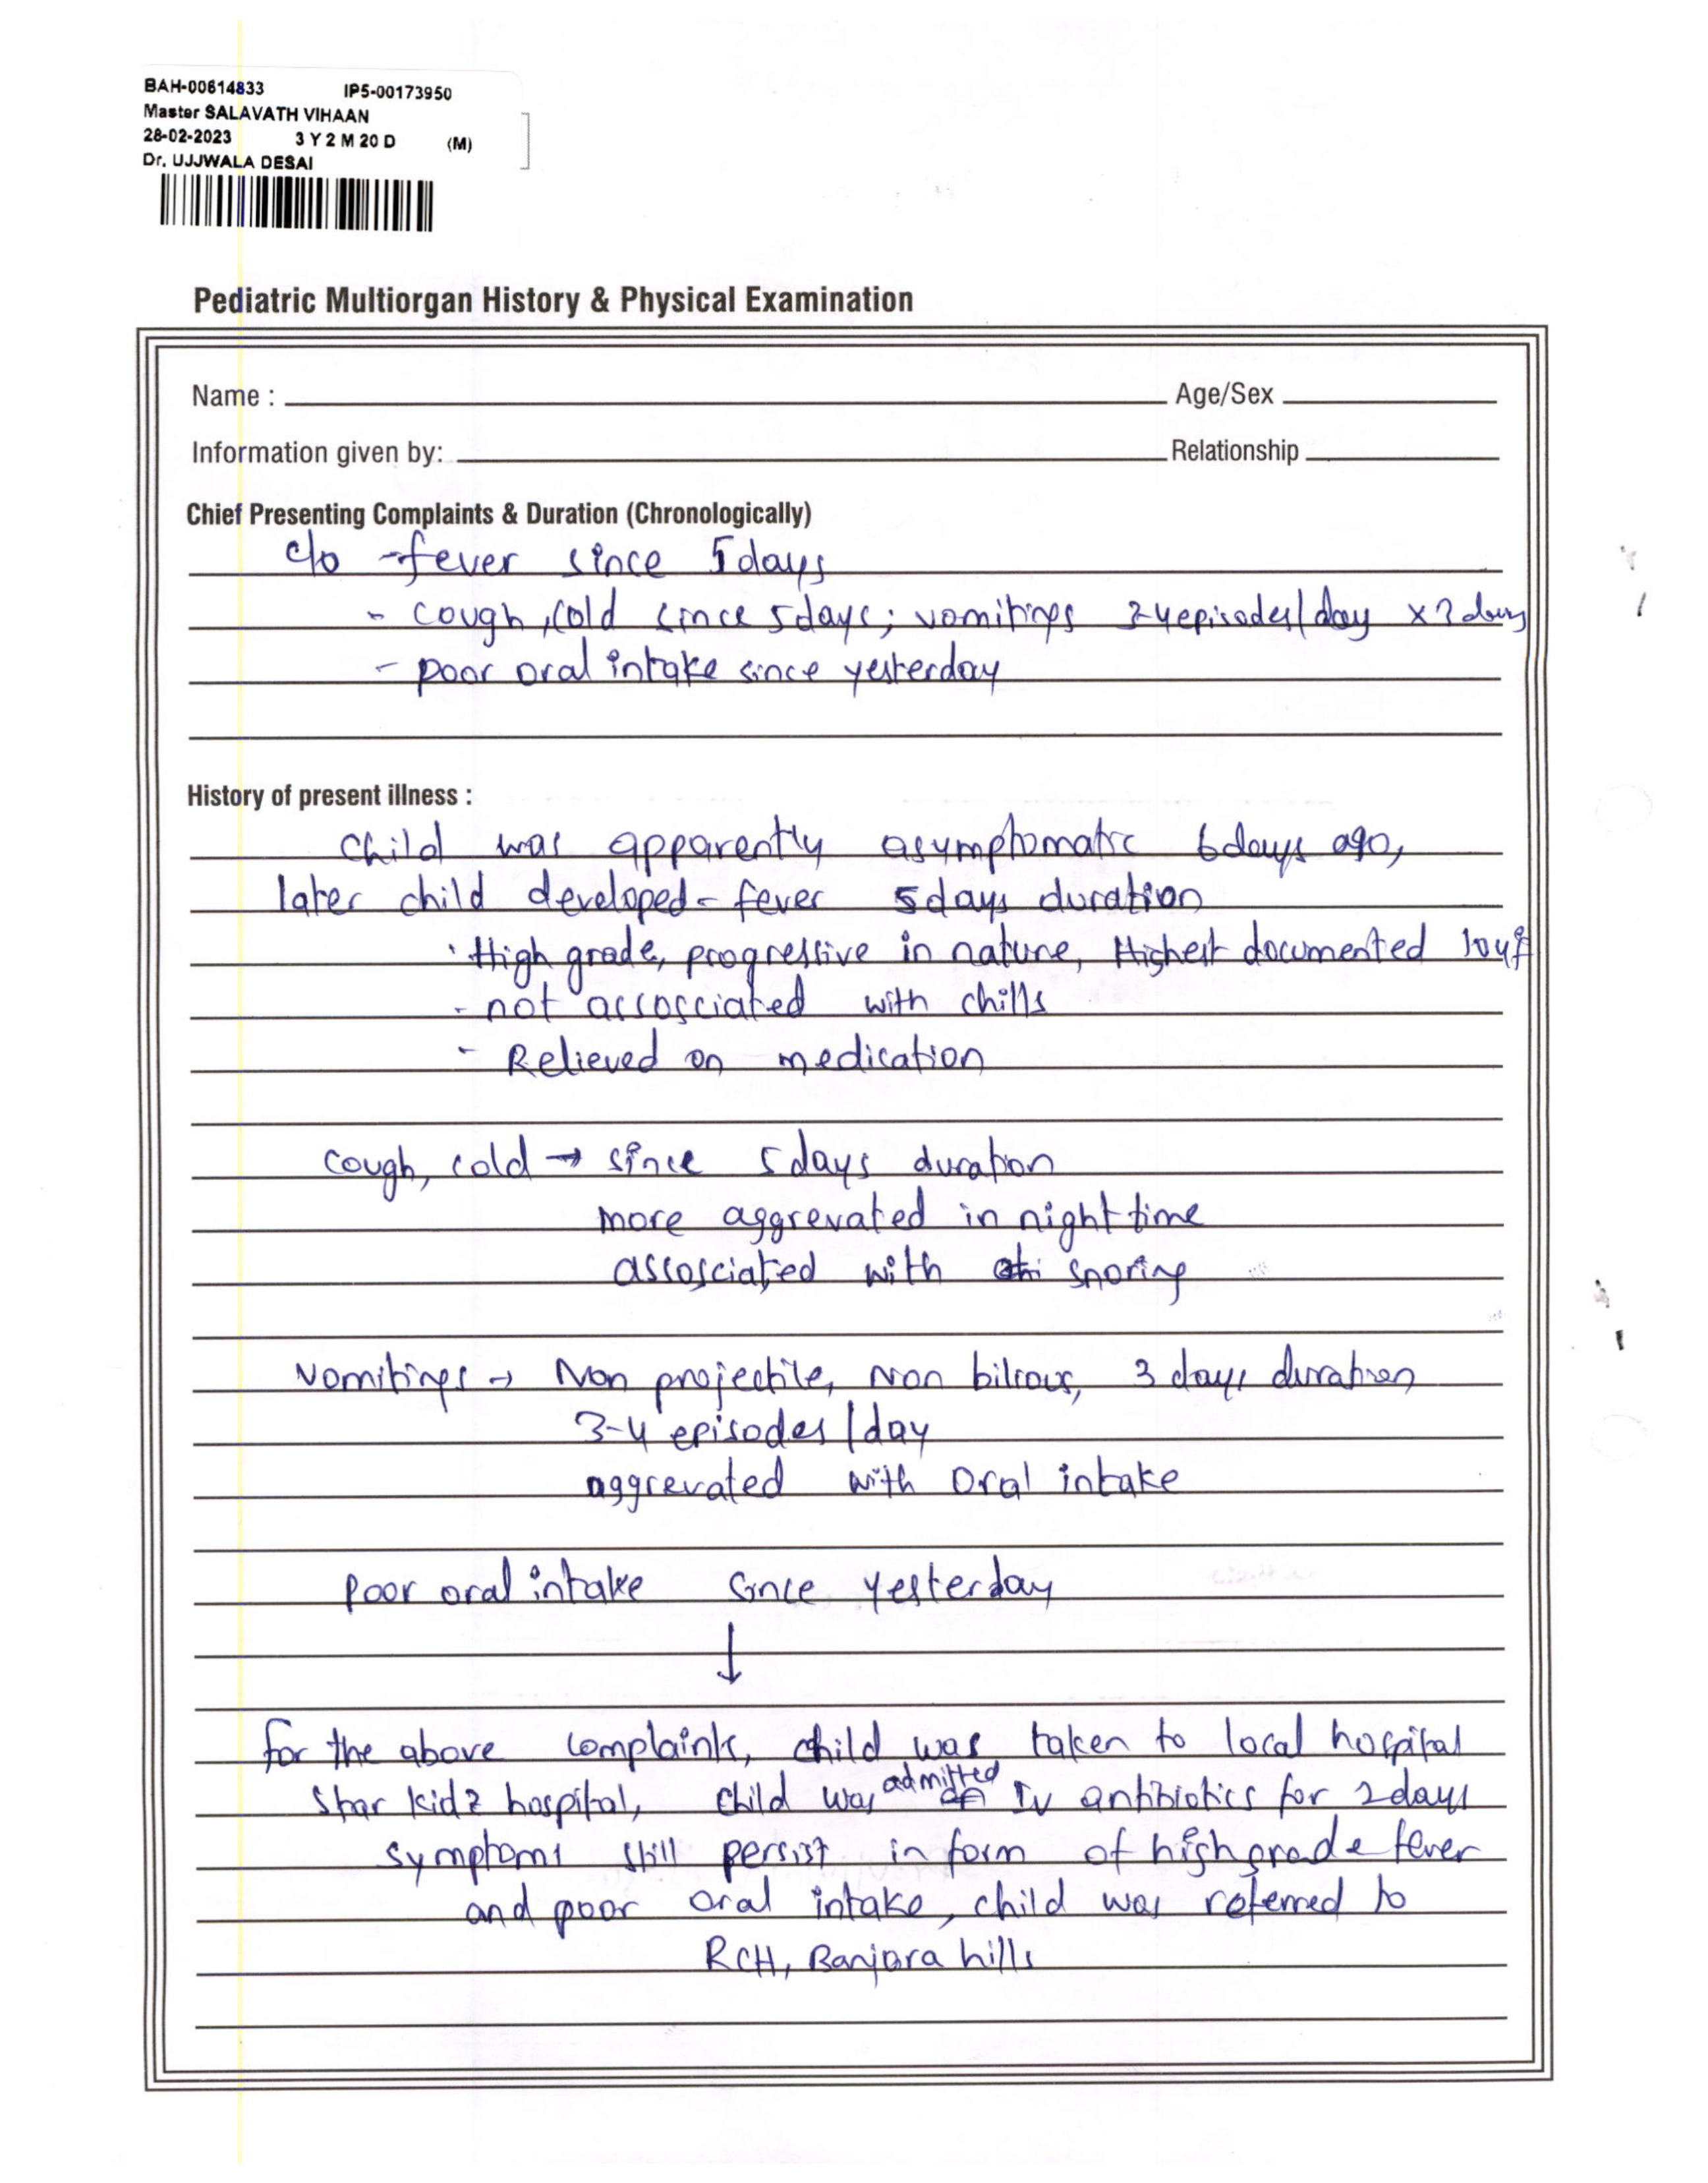 BAH-00614833 IP5-00173950
Master SALAVATH VIHAAN
28-02-2023 3 Y 2 M 20 D (M)
Dr. UJJWALA DESAI
Pediatric Multiorgan History & Physical Examination
Name : Age/Sex
Information given by: Relationship
Chief Presenting Complaints & Duration (Chronologically)
c/o - fever since 5 days
- cough, cold since 5 days; vomitings 3-4 episodes/day x 3 days
- poor oral intake since yesterday
History of present illness :
Child was apparently asymptomatic 6 days ago,
later child developed - fever 5 days duration
· High grade, progressive in nature, Highest documented 104°f
- not assosciated with chills
- Relieved on medication
cough, cold → since 5 days duration
more aggrevated in night time
assosciated with snoring
Vomitings → Non projectile, Non bilious, 3 days duration
3-4 episodes /day
aggrevated with oral intake
poor oral intake since yesterday
↓
for the above complaints, child was taken to local hospital
Star kidz hospital, child was admitted IV antibiotics for 2 days
symptoms still persist in form of high grade fever
and poor oral intake, child was referred to
RCH, Banjara hills